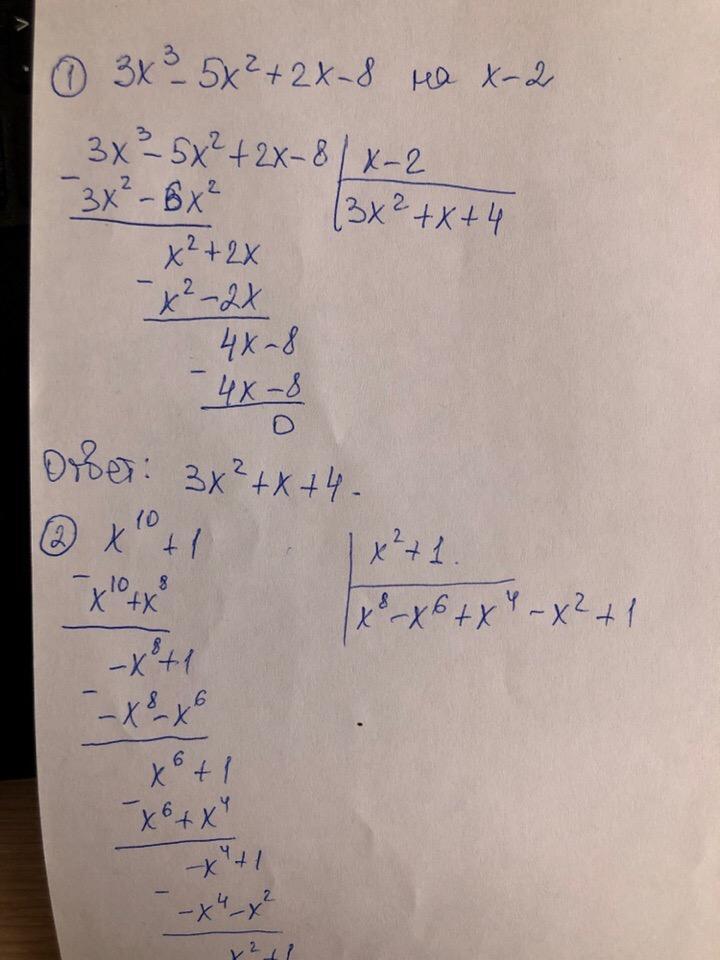 ① 3x³ - 5x² + 2x - 8 на x - 2
3x³ - 5x² + 2x - 8 | x - 2
- 3x² - 6x² | 3x² + x + 4
x² + 2x
- x² - 2x
4x - 8
- 4x - 8
0
Ответ: 3x² + x + 4.
② x¹⁰ + 1 | x² + 1.
- x¹⁰ + x⁸ | x⁸ - x⁶ + x⁴ - x² + 1
-x⁸ + 1
- -x⁸ - x⁶
x⁶ + 1
- x⁶ + x⁴
-x⁴ + 1
- -x⁴ - x²
x² + 1